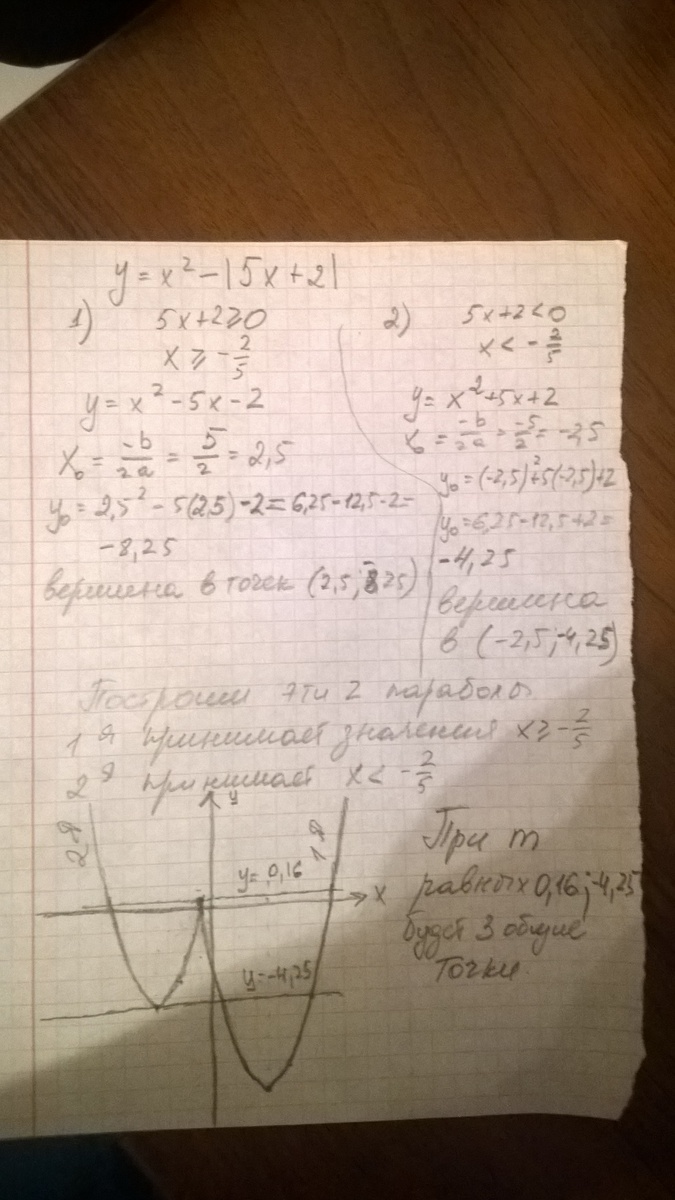 y = x² - |5x + 2|
1) 5x+2≥0
x ≥ -2/5
y = x² - 5x - 2
x₀ = -b/2a = 5/2 = 2,5
y₀ = 2,5² - 5(2,5) - 2 = 6,25 - 12,5 - 2 =
-8,25
вершина в точек (2,5; -8,25)
2) 5x+2<0
x < -2/5
y = x² + 5x + 2
x₀ = -b/2a = -5/2 = -2,5
y₀ = (-2,5)² + 5(-2,5) + 2
y₀ = 6,25 - 12,5 + 2 =
-4,25
вершина
в (-2,5; -4,25)
Построим эти 2 параболы
1я принимает значения x ≥ -2/5
2я принимает x < -2/5
y
2я
1я
y = 0,16
x
y = -4,25
При m
равных 0,16; -4,25
будет 3 общие
точки.